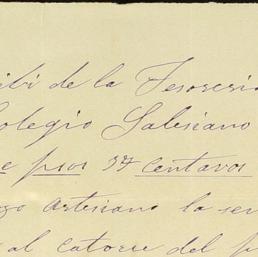 ibi de la Tesoreria
olegio Salesiano
e psos 37 centavos
zo artesiano la se
al catorce del p